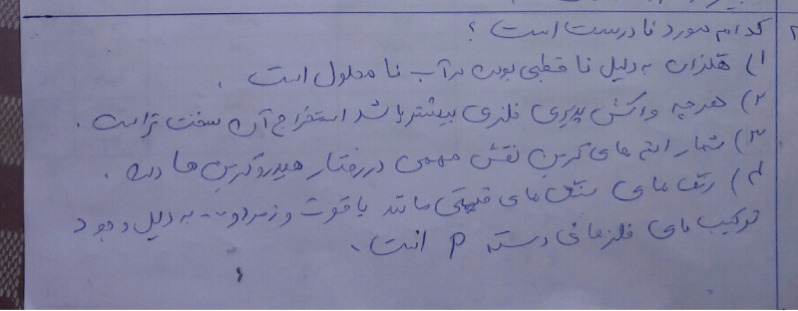 کدام مورد نادرست است ؟
۱) هگزان به دلیل ناقطبی بودن در آب نامحلول است .
۲) هرچه واکنش پذیری فلزی بیشتر باشد استخراج آن سخت تر است .
۳) شمار اتم های کربن نقش مهمی در رفتار هیدروکربن ها دارد .
۴) رنگ های سنگ های قیمتی مانند یاقوت و زمرد و ... به دلیل وجود
ترکیب های فلزهای دسته p است .